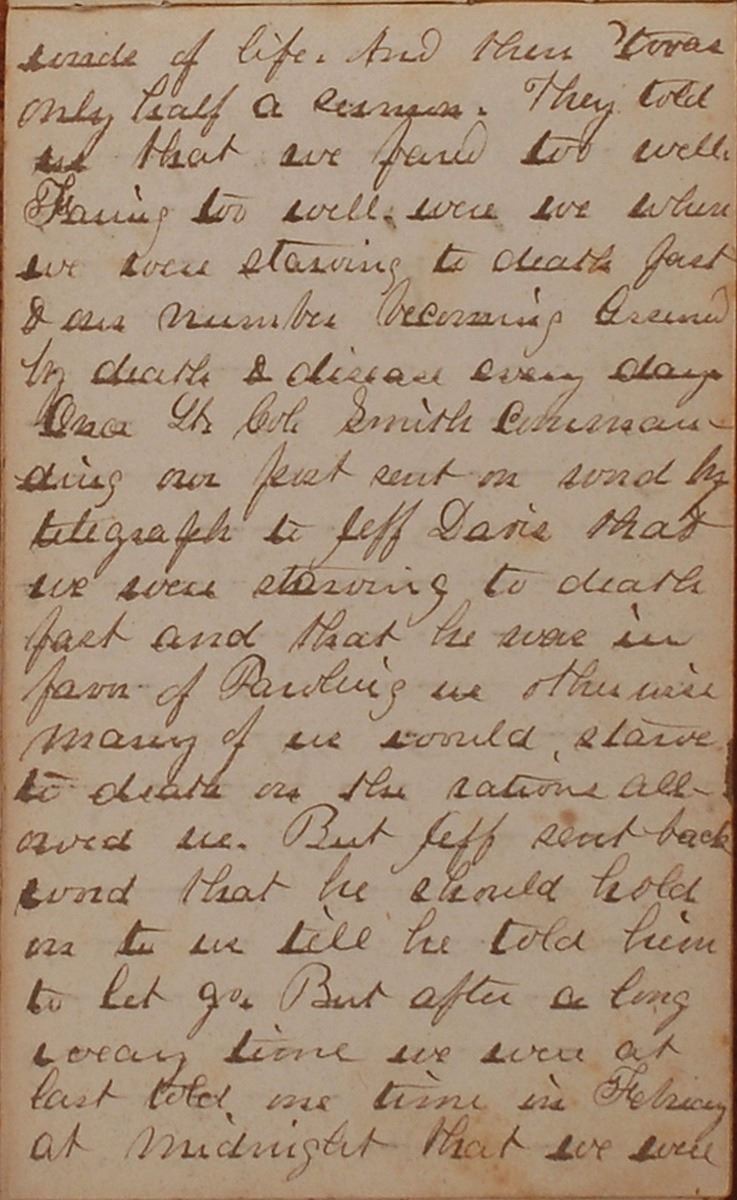 words of life. And then 'twas
only half a sermon. They told
us that we fared too well.
Faring too well. were we when
we were starving to death fast
& our number becoming lessened
by death & disease every day
Once Lt. Col. Smith Comman-
ding our post sent on word by
telegraph to Jeff Davis that
we were starving to death
fast and that he was in
favor of Paroling us otherwise
many of us would starve
to death on the rations all-
owed us. But Jeff sent back
word that he should hold
on to us till he told him
to let go. But after a long
weary time we were at
last told one time in Februay
at midnight that we were